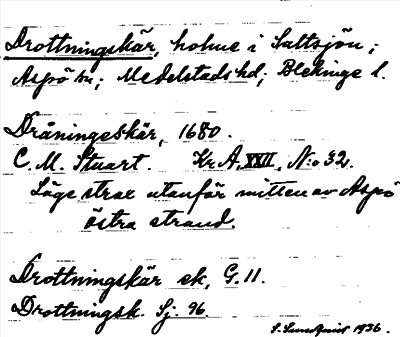 Drottningskär, holme i Saltsjön;
Aspö sn; Medelstads hd; Blekinge l.
Dråningeskär, 1680.
C. M. Stuart. Kr. A. XXII, N:o 32.
Läge strax utanför mitten av Aspö
östra strand.
Drottningskär ek, G. 11.
Drottningsk. Sj. 96.
S. Sundqvist 1936.